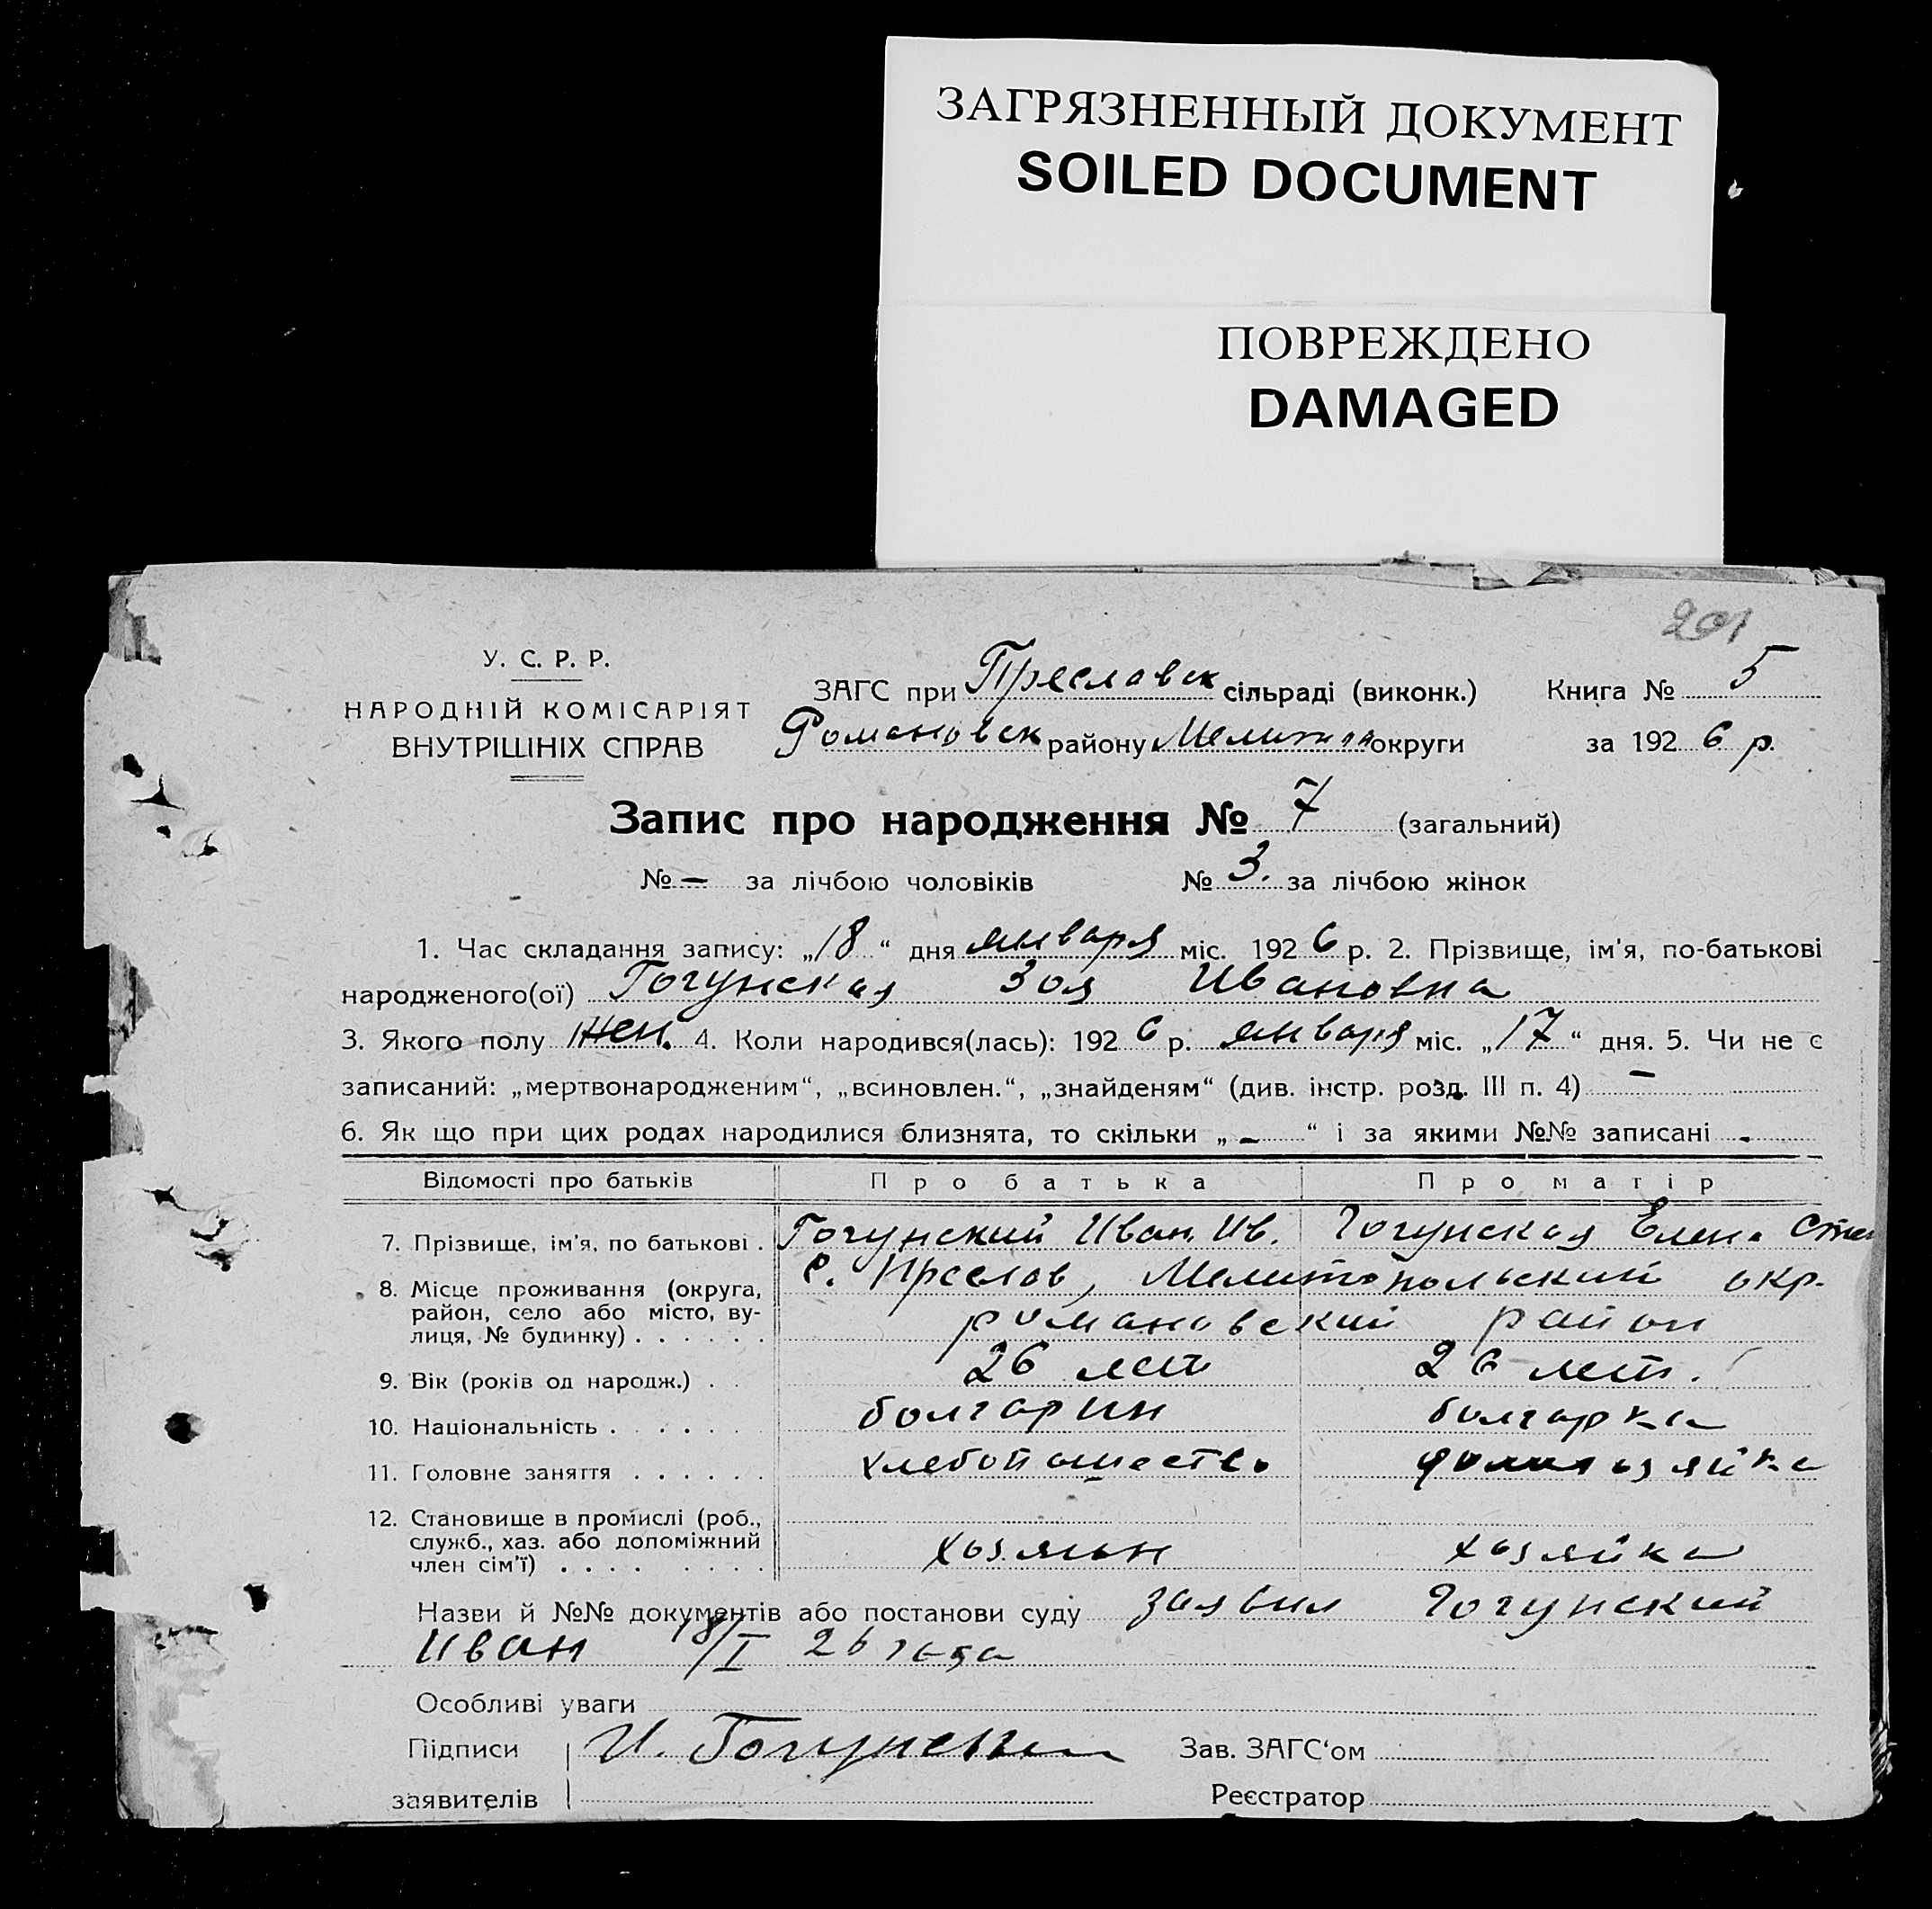 ЗАГРЯЗНЕННЫЙ ДОКУМЕНТ
SOILED DOCUMENT
ПОВРЕЖДЕНО
DAMAGED
201
У. С. Р. Р.
НАРОДНІЙ КОМІСАРІЯТ
ВНУТРІШНІХ СПРАВ
ЗАГС при Преславск сільраді (виконк.) Книга № 5
Романовск району Мелитоп округи за 1926 р.
Запис про народження № 7 (загальний)
№ — за лічбою чоловіків № 3. за лічбою жінок
1. Час складання запису: „18“ дня января міс. 1926 р. 2. Прізвище, ім'я, по-батькові
народженого(ої) Гогунская Зоя Ивановна
3. Якого полу жен. 4. Коли народився(лась): 1926 р. января міс. „17“ дня. 5. Чи не є
записаний: „мертвонародженим“, „всиновлен.“, „знайденям“ (див. інстр. розд. III п. 4) —
6. Як що при цих родах народилися близнята, то скільки „—“ і за якими №№ записані -
Відомості про батьків Про батька Про матір
7. Прізвище, ім'я, по батькові . Гогунский Иван Ив. Гогунская Елена Сте
8. Місце проживання (округа, с. Преслов, Мелитопольский окр.
район, село або місто, ву-
лиця, № будинку) . . . . . . романовский район
9. Вік (років од народж.) . . 26 лет 26 лет.
10. Національність . . . . . . болгарин болгарка
11. Головне заняття . . . . . . хлебопашество домохозяйка
12. Становище в промислі (роб.,
служб., хаз. або допоміжний
член сім'ї) . . . . . . . . хозяин хозяйка
Назви й №№ документів або постанови суду заявил Гогунский
Иван 18/I 26 года
Особливі уваги
Підписи И. Гогунский Зав. ЗАГС'ом
заявителів Реєстратор